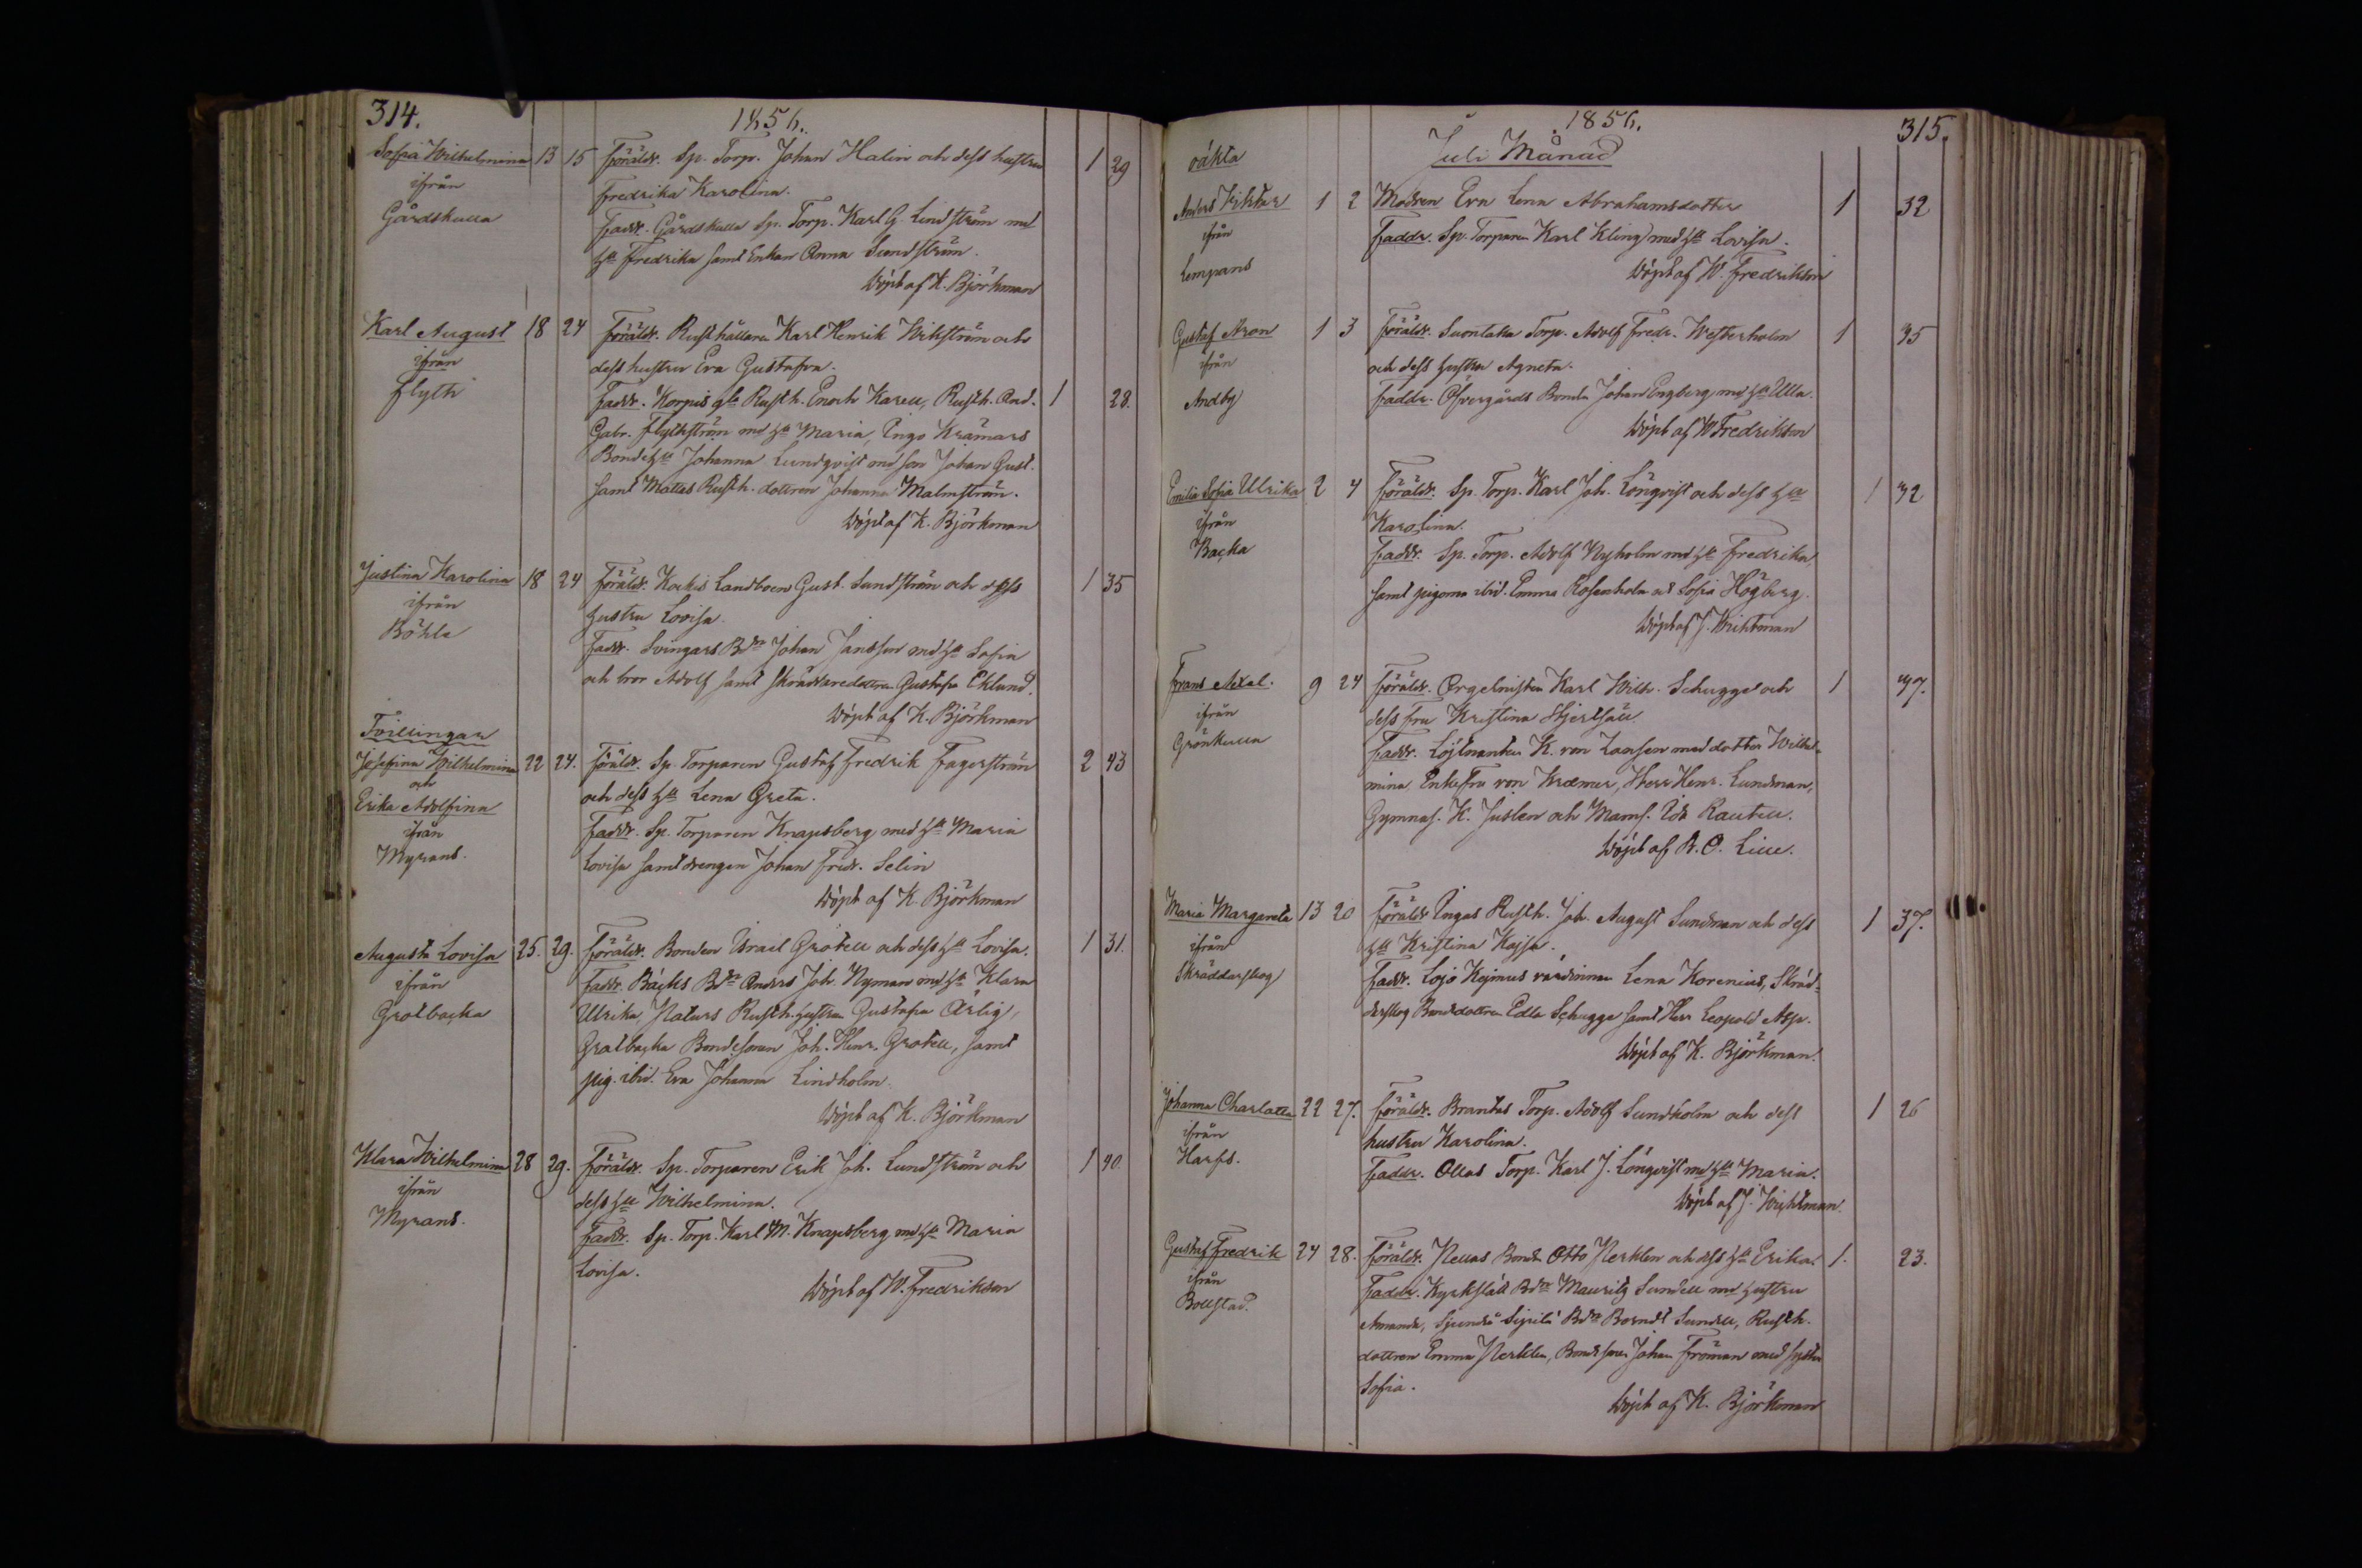 314.
1856.
Sofia Wilhelmina 13 15 Föräldr. Sp. Torp. Johan Halin och dess hustru 1 29
ifrån
Fredrika Karolina.
Gårdskulla
Faddr. Gårdskulla Sp. Torp. Karl G. Lindström med
h:u Fredrika samt Enkan Anna Sundström.
Döpt af K. Björkman
Karl August 18 24 Föräldr. Rusthållaren Karl Henrik Wikström och
ifrån
dess hustru Eva Gustafva.
Flyth
Faddr. Korpis Rusth. Enoch Karell, Rusth. And. 1 28.
Gabr. Flythström med h:u Maria, Ingo Krämars
Bondeh:u Johanna Lundqvist med son Johan Gust.
samt Mattas Rusth. dottren Johanna Malmström.
Döpt af K. Björkman
Justina Karolina 18 24 Föräldr. Kockis Landboen Gust. Sundström och dess 1 35
ifrån
hustru Lovisa.
Böhle
Faddr. Svingars Bdn Johan Jansson med h:u Sofia
och bror Adolf samt Skräddaredottren Gustafva Eklund.
Döpt af K. Björkman
Tvillingar
Josefina Wilhelmina 22 24. Föräldr. Sp. Torparen Gustaf Fredrik Fagerström 2 43
och
Erika Adolfina
och dess h:u Lena Greta.
ifrån
Faddr. Sp. Torparen Knapsberg med h:u Maria
Myrans.
Lovisa samt drengen Johan Fredr. Selin
Döpt af K. Björkman
Augusta Lovisa 25. 29. Föräldr. Bonden Israel Grotell och dess h:u Lovisa. 1 31.
ifrån
Faddr. Bäcks Bdn Anders Joh. Nyman med h:u Klara
Grotbacka
Ulrika, Naturs Rusth. hustrun Gustafva Ärlig,
Grotbacka Bondesonen Joh. Henr. Grotell, samt
pig. ibid. Eva Johanna Lindholm.
Döpt af K. Björkman
Klara Wilhelmina 28 29. Föräldr. Sp. Torparen Erik Joh. Lundström och 1 40.
ifrån
dess h:u Wilhelmina.
Myrans.
Faddr. Sp. Torp. Karl M. Knapsberg med h:u Maria
Lovisa.
Döpt af W. Fredrikson
1856.
315.
Juli Månad
oäkta
Anders Viktor 1 2 Modren Eva Lena Abrahamsdotter 1 32
ifrån
Faddr. Sp. Torparen Karl Kling med h:u Lovisa.
Lempans
Döpt af W. Fredrikson
Gustaf Aron 1 3 Föräldr. Suontaka Torp. Adolf Fredr. Westerholm 1 35
ifrån
och dess hustru Agneta.
Andby
Faddr. Öfvergårds Bonden Johan Engberg med h:u Ulla.
Döpt af W Fredrikson
Emilia Sofia Ulrika 2 4 Föräldr. Sp. Torp. Karl Joh. Lönqvist och dess h:u 1 32
ifrån
Karolina.
Backa
Faddr. Sp. Torp. Adolf Nyholm med h:u Fredrika,
samt pigorna ibid. Emma Rosenholm och Sofia Högberg.
Döpt af J. Wichtman
Frans Axel. 9 24 Föräldr. Orgelnisten Karl Wilh. Schugge och 1 37.
ifrån
dess fru Kristina Hjertsäll
Grönkulla
Faddr. Löjtnanten K. von Zansen med dotter Wilhel-
mina, Enkefru von Kræmer, Herr Henr. Lundman,
Gymnas. K. Juslen och Mams. Ida Rautell.
Döpt af B. O. Lille.
Maria Margareta 13 20 Föräldr. Ingas Rusth. Joh. August Sundman och dess 1 37.
ifrån
h:u Kristina Kajsa.
Skräddarskog
Faddr. Lojo Kejmus värdinnan Lena Korenius, Skräd-
darskog Bondedottren Edla Schugge samt Herr Leopold Asp.
Döpt af K. Björkman.
Johanna Charlotta 22 27. Föräldr. Brantas Torp. Adolf Sundholm och dess 1 26
ifrån
hustru Karolina.
Harfs.
Faddr. Ollas Torp. Karl J. Lönqvist med h:u Maria.
Döpt af J. Wichtman.
Gustaf Fredrik 24 28. Föräldr. Nellas Bonden Otto Nerklen och dess h:u Erika. 1. 23.
ifrån
Faddr. Kyrkslätt Bdn Mauritz Sundell med hustru
Bollstad.
Amanda, Sjundå Sipilä Bdn Berndt Sundell, Rusth.
dottren Emma Nerklen, Bondesonen Johan Fröman med syster
Sofia.
Döpt af K. Björkman